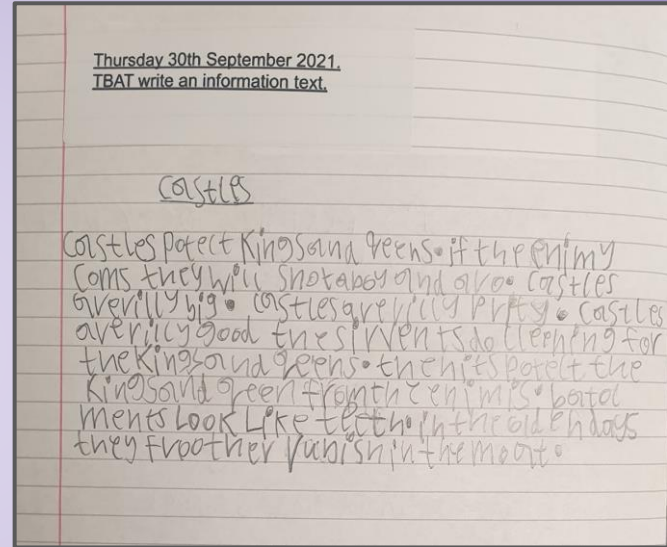 Thursday 30th September 2021.
TBAT write an information text.
Castles
Castles potect Kings and qeens. if the enimy
coms they will shot a boy and aro. castles
are rilly big. castles are rilly prity. castles
are rilly good the sirvents do cleening for
the Kings and qeens. the nits potect the
Kings and qeen from the enimis. batol
ments Look Like teeth. in the olden days
they froo ther rubish in the moat.